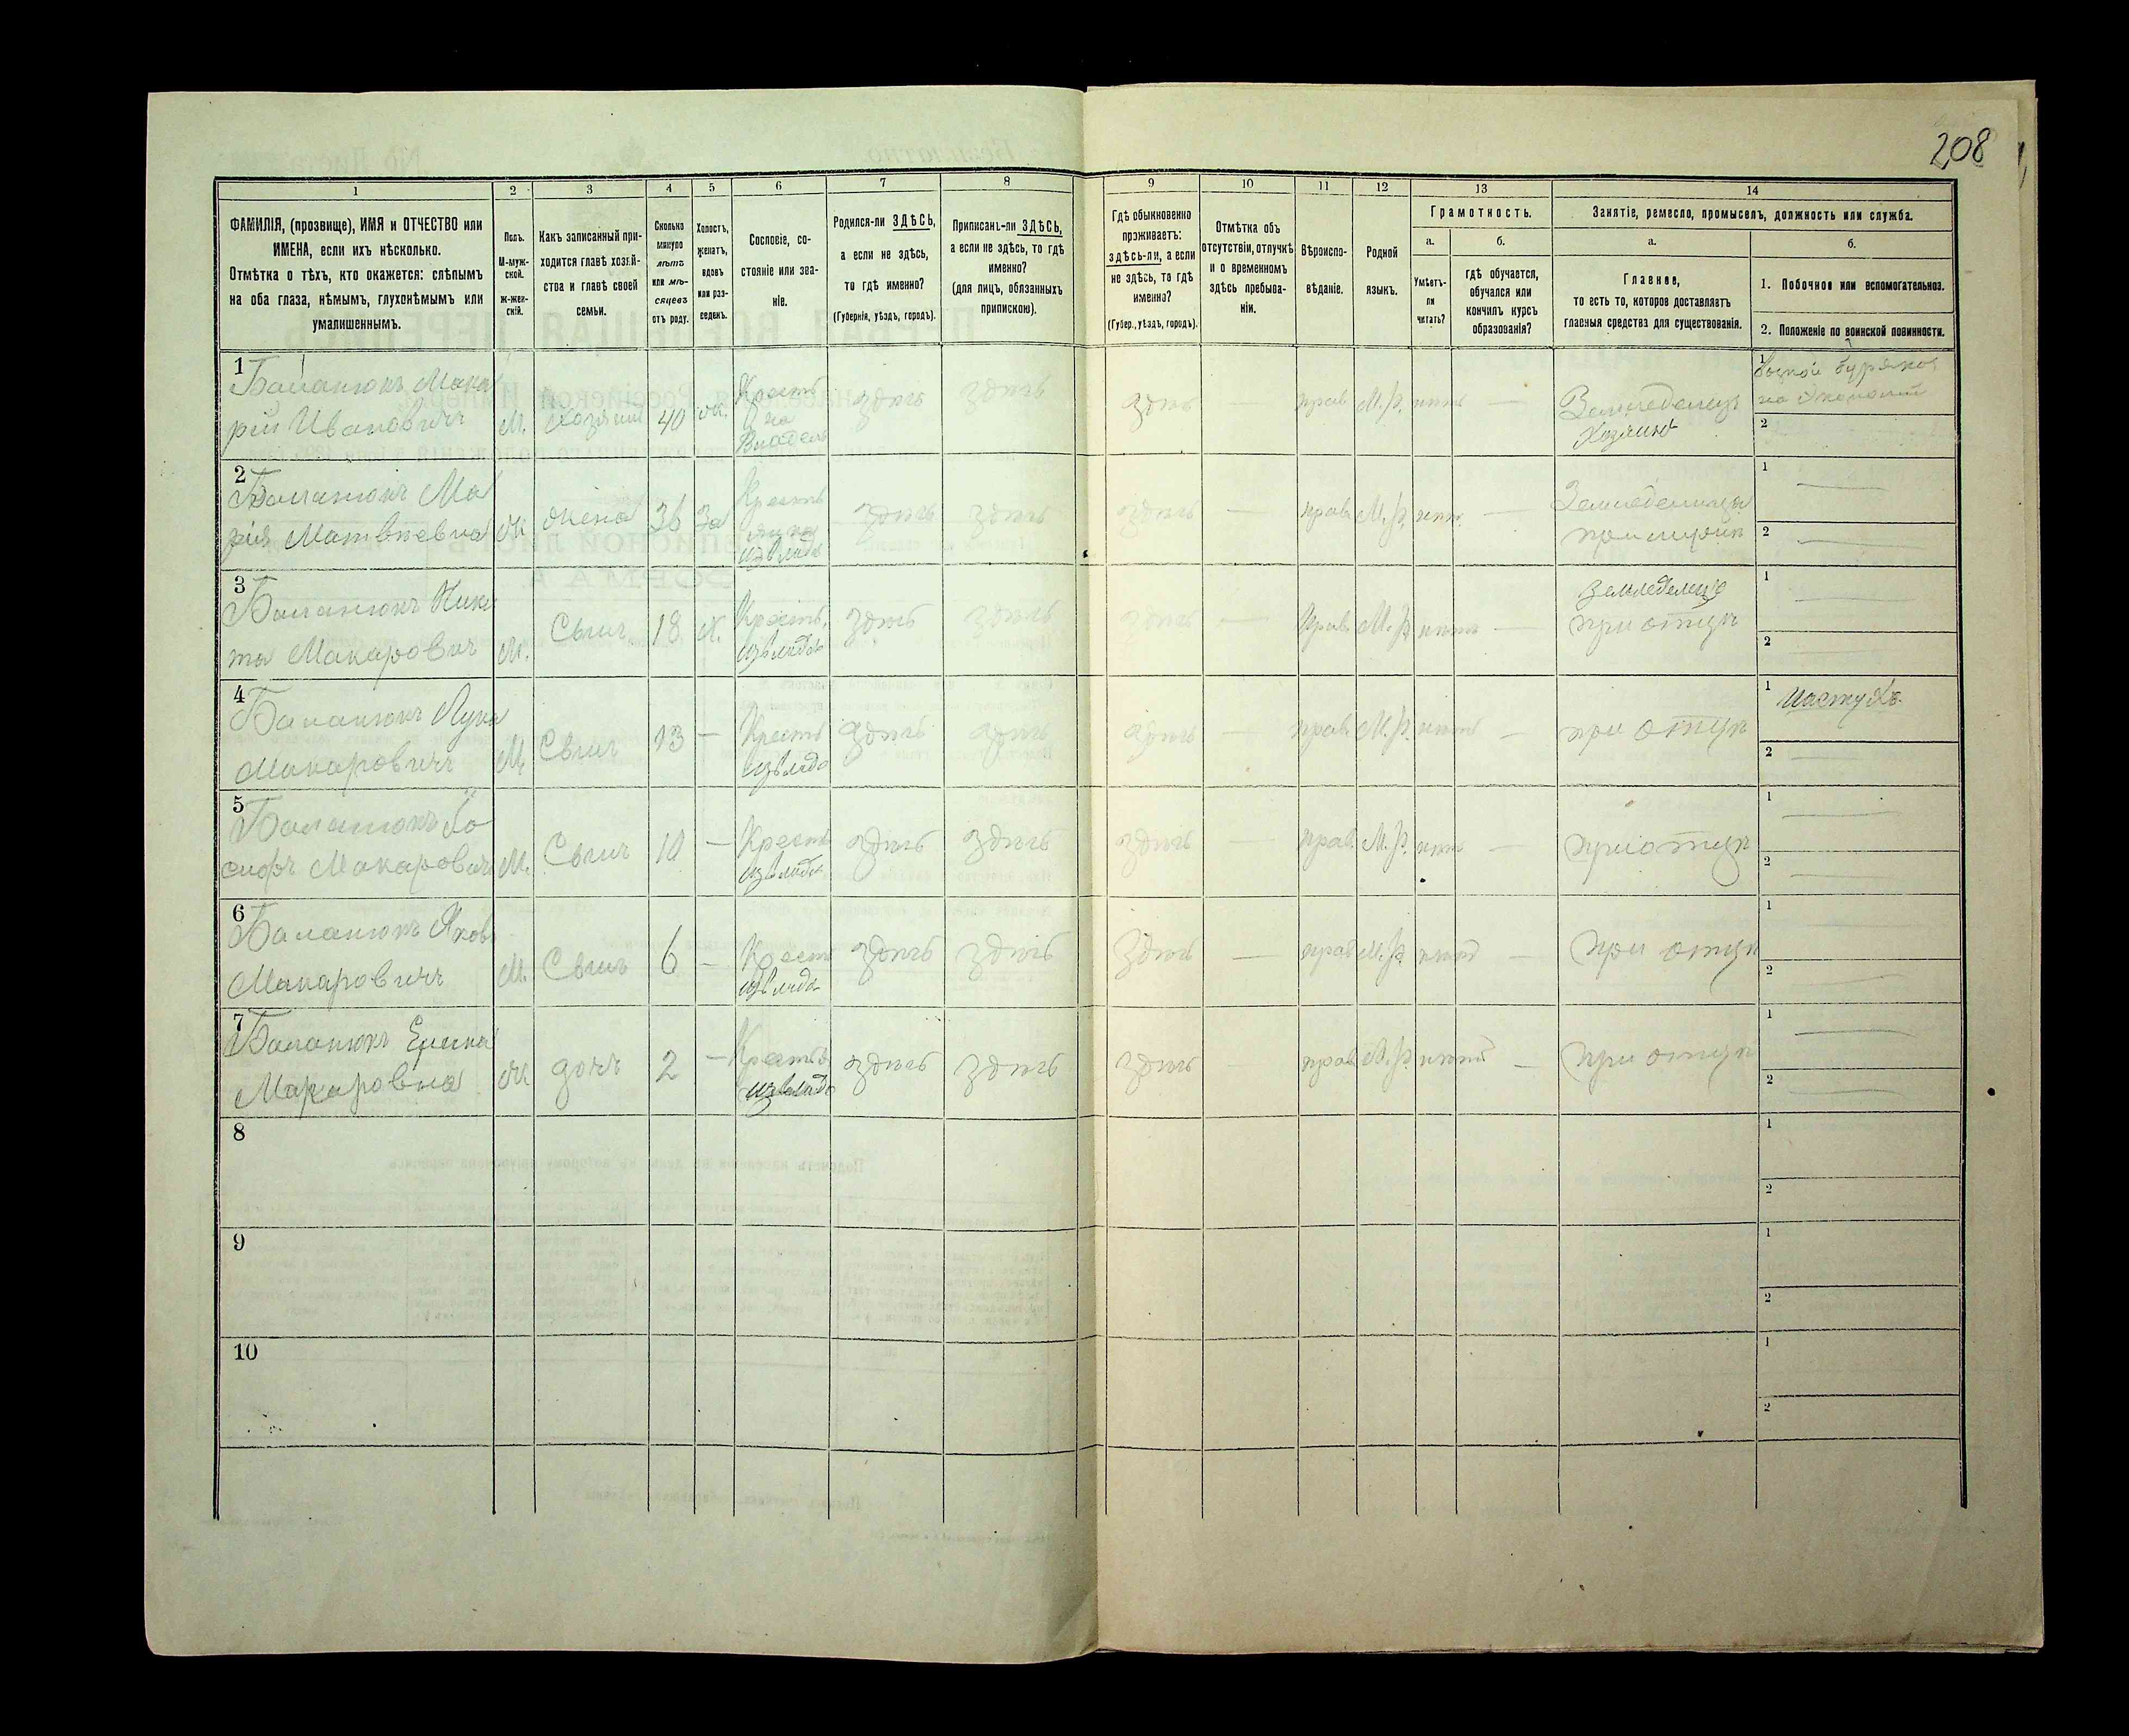 208
1
2
3
4
5
6
7
8
9
10
11
12
13
14
ФАМИЛІЯ, (прозвище), ИМЯ и ОТЧЕСТВО или
ИМЕНА, если ихъ нѣсколько.
Отмѣтка о тѣхъ, кто окажется: слѣпымъ
на оба глаза, нѣмымъ, глухонѣмымъ или
умалишеннымъ.
Полъ.
М-муж-
ской.
ж-жен-
скій.
Какъ записанный при-
ходится главѣ хозяй-
ства и главѣ своей
семьи.
Сколько
минуло
лѣтъ
или мѣ-
сяцевъ
отъ роду.
Холостъ,
женатъ,
вдовъ
или раз-
веденъ.
Сословіе, со-
стояніе или зва-
ніе.
Родился-ли ЗДѢСЬ,
а если не здѣсь,
то гдѣ именно?
(Губернія, уѣздъ, городъ).
Приписанъ-ли ЗДѢСЬ,
а если не здѣсь, то гдѣ
именно?
(для лицъ, обязанныхъ
припискою).
Гдѣ обыкновенно
проживаетъ:
здѣсь-ли, а если
не здѣсь, то гдѣ
именно?
(Губер., уѣздъ, городъ).
Отмѣтка объ
отсутствіи, отлучкѣ
и о временномъ
здѣсь пребыва-
ніи.
Вѣроиспо-
вѣданіе.
Родной
языкъ.
Грамотность.
а.
Умѣетъ-
ли
читать?
б.
гдѣ обучается,
обучался или
кончилъ курсъ
образованія?
Занятіе, ремесло, промыселъ, должность или служба.
а.
Главное,
то есть то, которое доставляетъ
главныя средства для существованія.
б.
1. Побочное или вспомогательное.
2. Положеніе по воинской повинности.
1
Баланюкъ Мака
рій Ивановичъ
М.
Хозяин
40
ж.
Крестья
здѣсь
здѣсь
здѣсь
—
прав
М. р.
нѣтъ
—
Земледелец
Хозяин
1
2
2
Баланюкъ Ма
рія Матвѣевна
ж
жена
36
За
Крестья
изъ влад
здѣсь
здѣсь
здѣсь
—
прав
М. р.
нѣт.
—
1 —
2 —
3
Баланюкъ Ники
та Макарович
М.
Сынъ
18
Х.
Крестья.
изъ влад
здѣсь
здѣсь
здѣсь
—
Прав
М. р
нѣтъ
—
земледелец
при отцѣ
1 —
2 —
4
Баланюкъ Лука
Макаровичъ
М
Сынъ
13
—
Крестья
изъ влад
здѣсь
здѣсь
здѣсь
—
прав
М. р.
нѣтъ
—
при отцѣ
1 Пастухъ.
2 —
5
Баланюкъ Іо
сифъ Макарович
М.
Сынъ
10
—
Крестья
изъ влад
здѣсь
здѣсь
здѣсь
—
прав.
М. р.
нѣт
—
при отцѣ
1 —
2 —
6
Баланюкъ Яковъ
Макаровичъ
М.
Сынъ
6
—
Крестья
изъ влад
здѣсь
здѣсь
здѣсь
—
прав
М. р.
нѣтъ
—
при отцѣ
1
2 —
7
Баланюкъ
Макаровна
ж
дочъ
2
—
Крестья
изъ влад
здѣсь
здѣсь
здѣсь
прав
М. р.
нѣтъ
—
при отцѣ
1 —
2 —
8
1
2
9
1
2
10
1
2